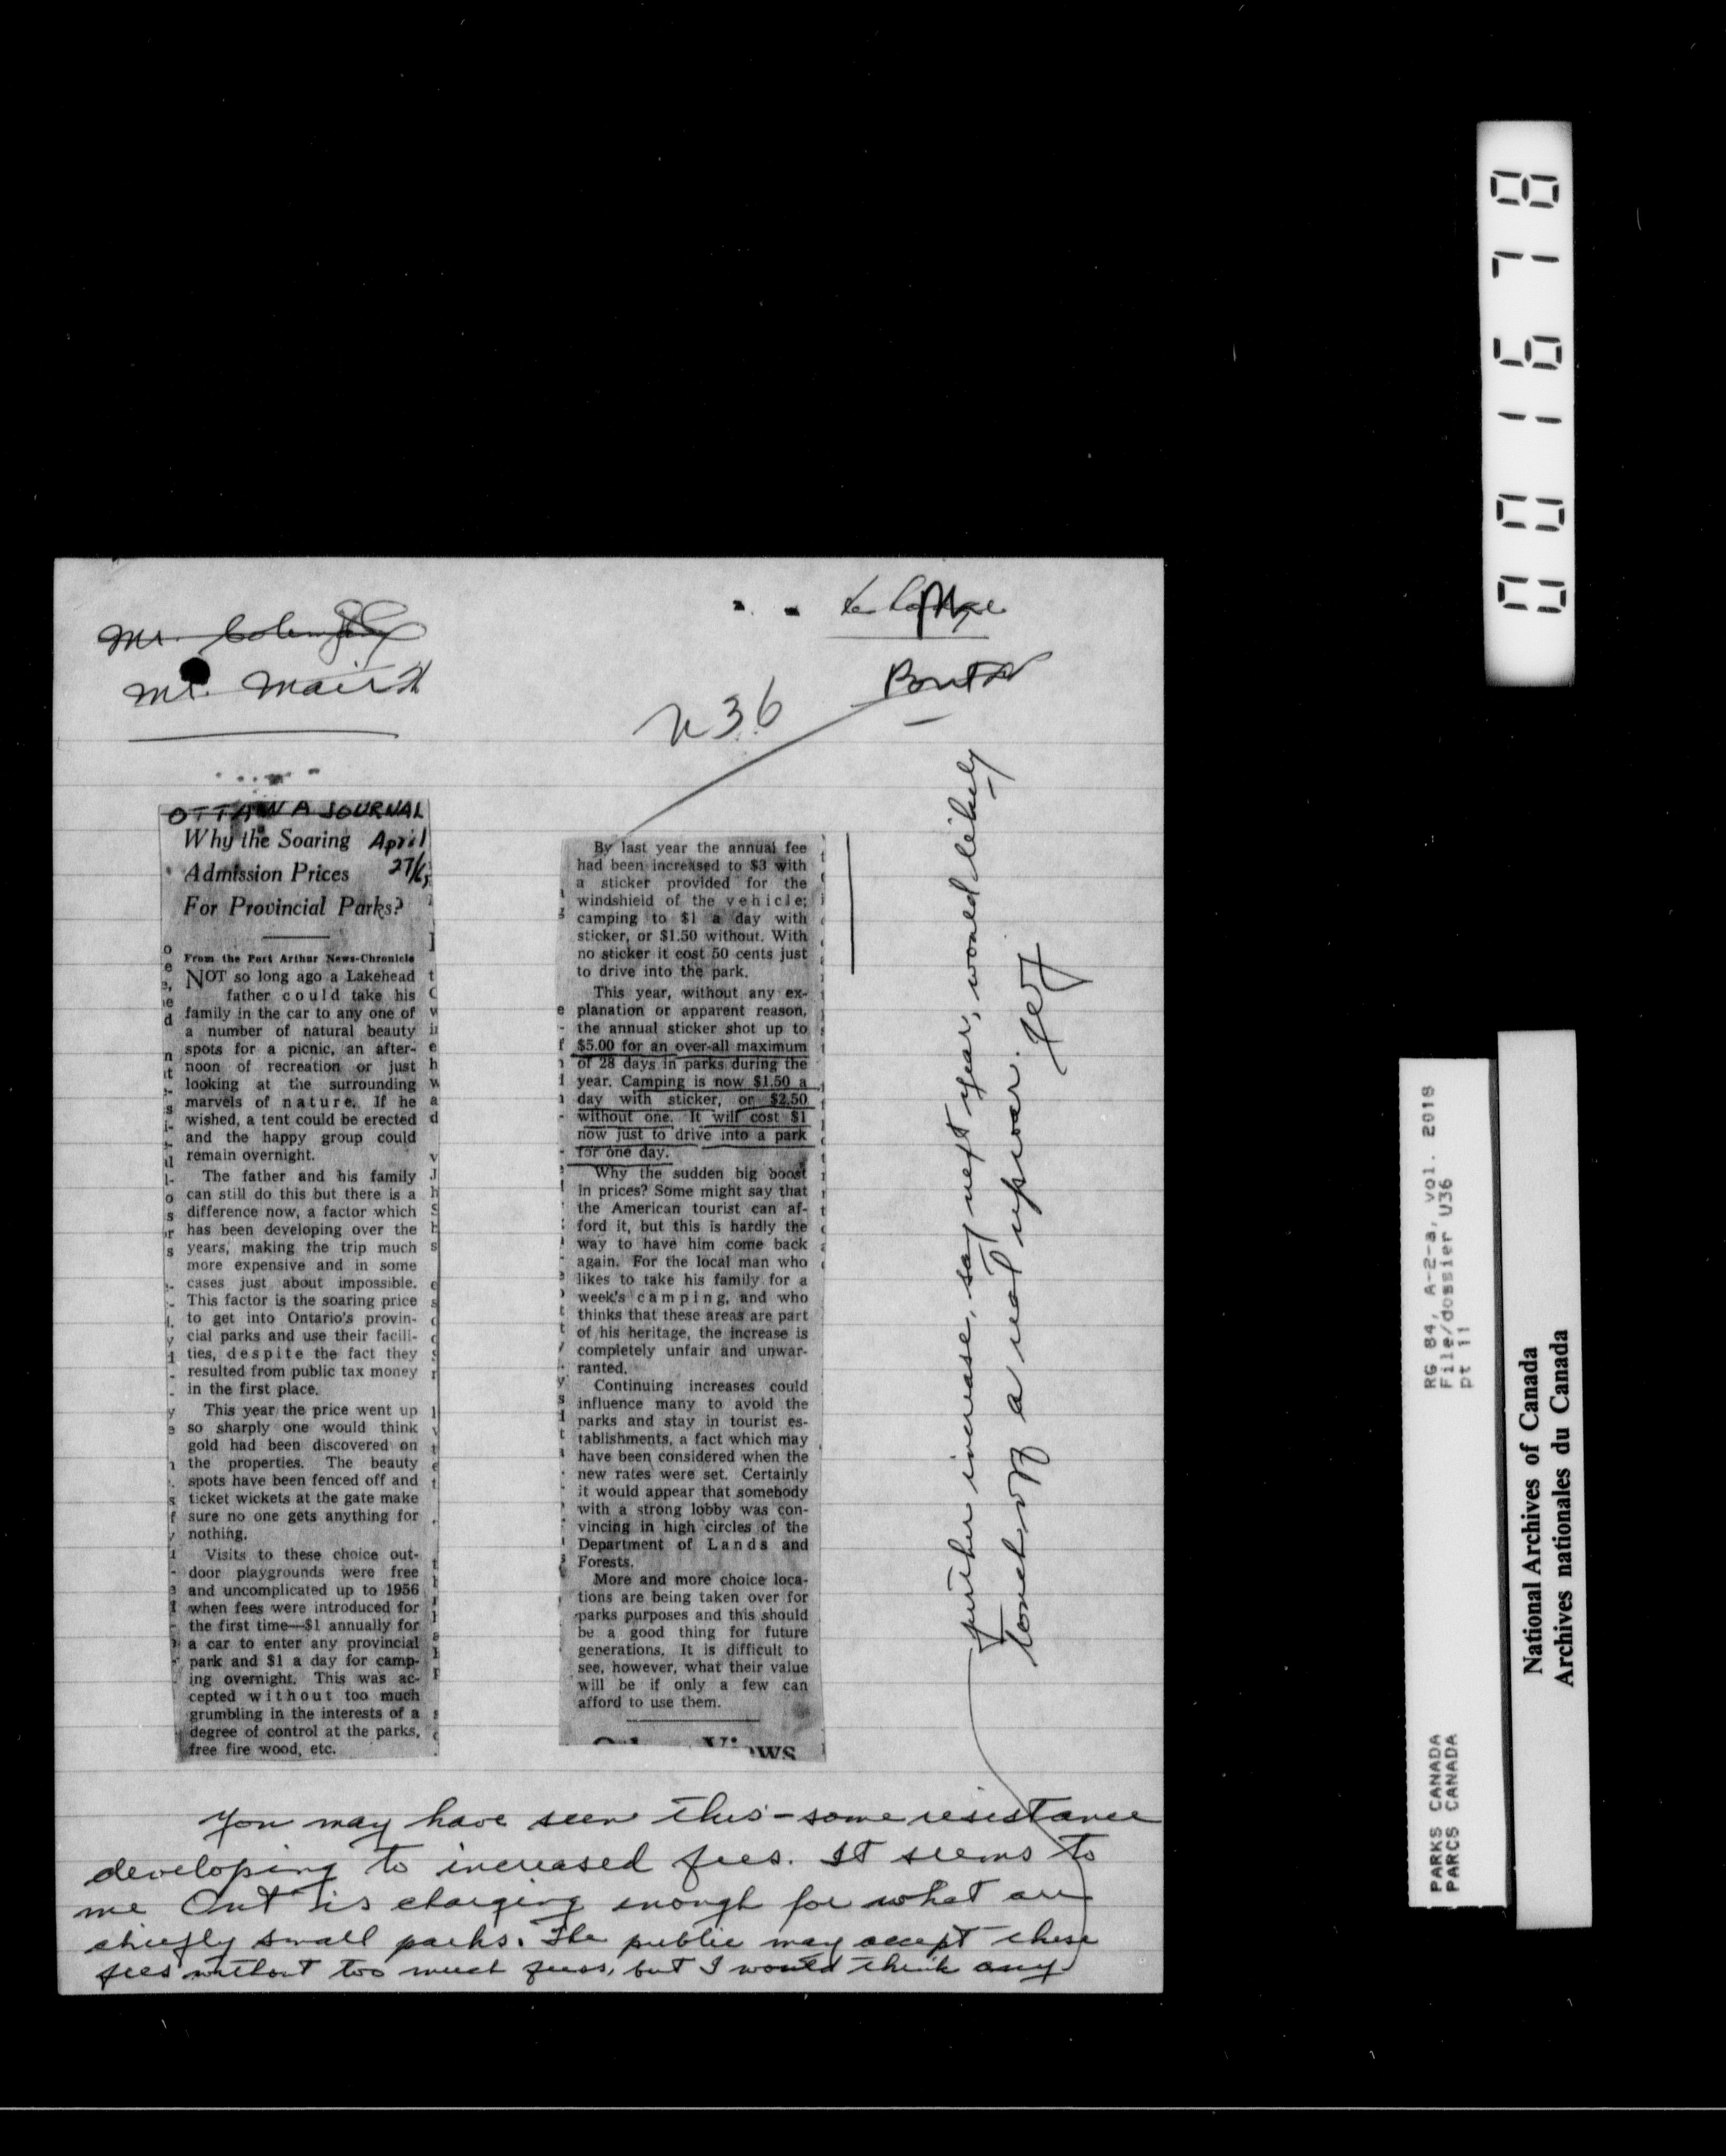 Mr. Mair
U36
OTTAWA JOURNAL
April
27/65
Why the Soaring
Admission Prices
For Provincial Parks?
From the Port Arthur News-Chronicle
NOT so long ago a Lakehead
father could take his
family in the car to any one of
a number of natural beauty
spots for a picnic, an after-
noon of recreation or just
looking at the surrounding
marvels of nature. If he
wished, a tent could be erected
and the happy group could
remain overnight.
The father and his family
can still do this but there is a
difference now, a factor which
has been developing over the
years, making the trip much
more expensive and in some
cases just about impossible.
This factor is the soaring price
to get into Ontario's provin-
cial parks and use their facili-
ties, despite the fact they
resulted from public tax money
in the first place.
This year the price went up
so sharply one would think
gold had been discovered on
the properties. The beauty
spots have been fenced off and
ticket wickets at the gate make
sure no one gets anything for
nothing.
Visits to these choice out-
door playgrounds were free
and uncomplicated up to 1956
when fees were introduced for
the first time—$1 annually for
a car to enter any provincial
park and $1 a day for camp-
ing overnight. This was ac-
cepted without too much
grumbling in the interests of a
degree of control at the parks,
free fire wood, etc.
By last year the annual fee
had been increased to $3 with
a sticker provided for the
windshield of the vehicle;
camping to $1 a day with
sticker, or $1.50 without. With
no sticker it cost 50 cents just
to drive into the park.
This year, without any ex-
planation or apparent reason,
the annual sticker shot up to
$5.00 for an over-all maximum
of 28 days in parks during the
year. Camping is now $1.50 a
day with sticker, or $2.50
without one. It will cost $1
now just to drive into a park
for one day.
Why the sudden big boost
in prices? Some might say that
the American tourist can af-
ford it, but this is hardly the
way to have him come back
again. For the local man who
likes to take his family for a
week's camping, and who
thinks that these areas are part
of his heritage, the increase is
completely unfair and unwar-
ranted.
Continuing increases could
influence many to avoid the
parks and stay in tourist es-
tablishments, a fact which may
have been considered when the
new rates were set. Certainly
it would appear that somebody
with a strong lobby was con-
vincing in high circles of the
Department of Lands and
Forests.
More and more choice loca-
tions are being taken over for
parks purposes and this should
be a good thing for future
generations. It is difficult to
see, however, what their value
will be if only a few can
afford to use them.
You may have seen this - some resistance
developing to increased fees. It seems to
me Ont is charging enough for what are
chiefly small parks. The public may accept these
fees without too much fuss, but I would think any
further increase, say next year, would likely
touch off a real uproar.
001678
RG 84, A-2-a, vol. 2018
File/dossier U36
pt 11
PARKS CANADA
PARCS CANADA
National Archives of Canada
Archives nationales du Canada